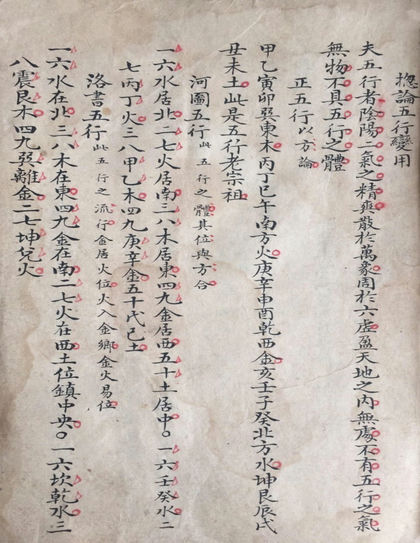 揔論五行變用
夫五行者陰陽二氣之精與散於萬象周於六虛盈天地之內無處不有五行之氣
無物不具五行之體
正五行以方論
甲乙寅卯巽東木丙丁巳午南方火庚辛申酉乾西金亥壬子癸北方水坤艮辰戌
丑未土此是五行老宗祖
河圖五行此五行之體其位與方合
一六水居北二七火居南三八木居東四九金居西五十土居中〇一六壬癸水二
七丙丁火三八甲乙木四九庚辛金五十戊己土
洛書五行此五行之流行金居火位火入金鄉金火易位
一六水在北三八木在東四九金在南二七火在西土位鎮中央〇一六坎乾水三
八震艮木四九巽離金二七坤兌火